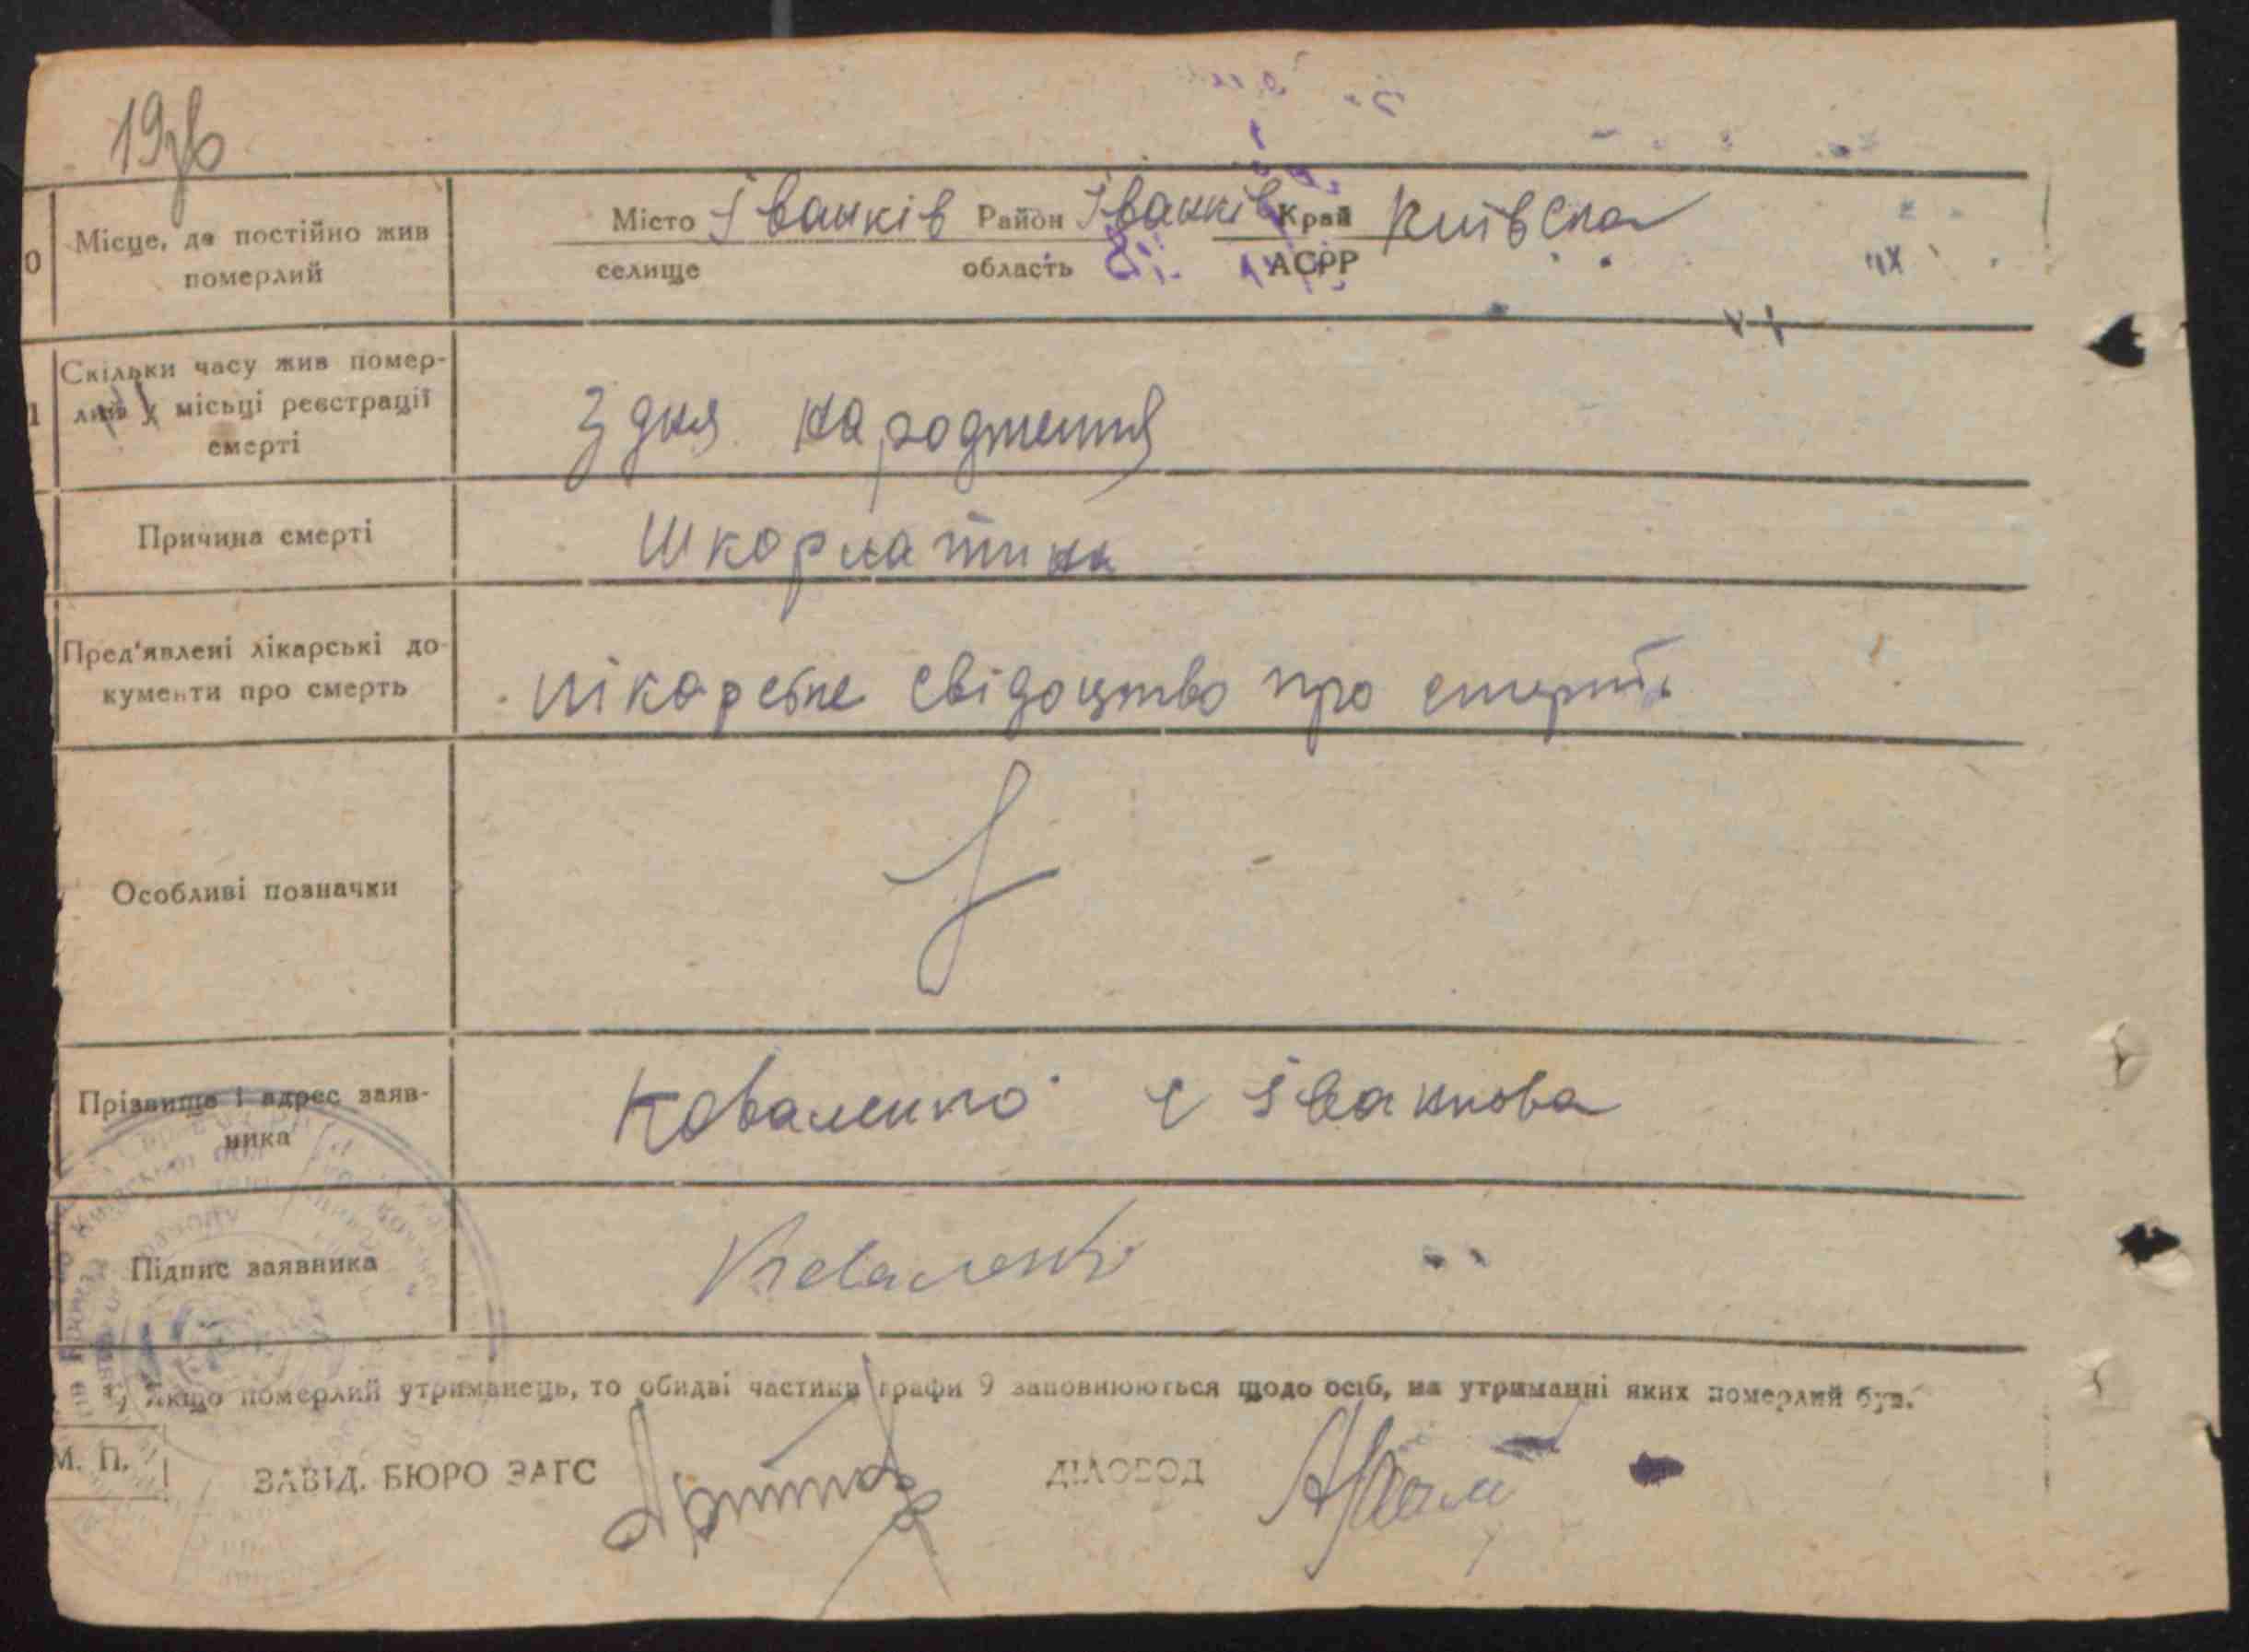 0 Місце, де постійно жив померлий
Місто Іванків Район Іванків Край Київська
селище область АСРР
1 Скільки часу жив помер-
лий у місьці реєстрації
смерті
З дня народження
Причина смерті
Шкорлатина
Пред'явлені лікарські до-
кументи про смерть
лікарське свідоцтво про смерть
Особливі позначки
Прізвище і адрес заяв-
ника
Коваленко с Іванкова
Підпис заявника
Коваленко
*) Якщо померлий утриманець, то обидві частини графи 9 заповнюються щодо осіб, на утриманні яких померлий був.
М. П.
ЗАВІД. БЮРО ЗАГС
ДІЛОВОД